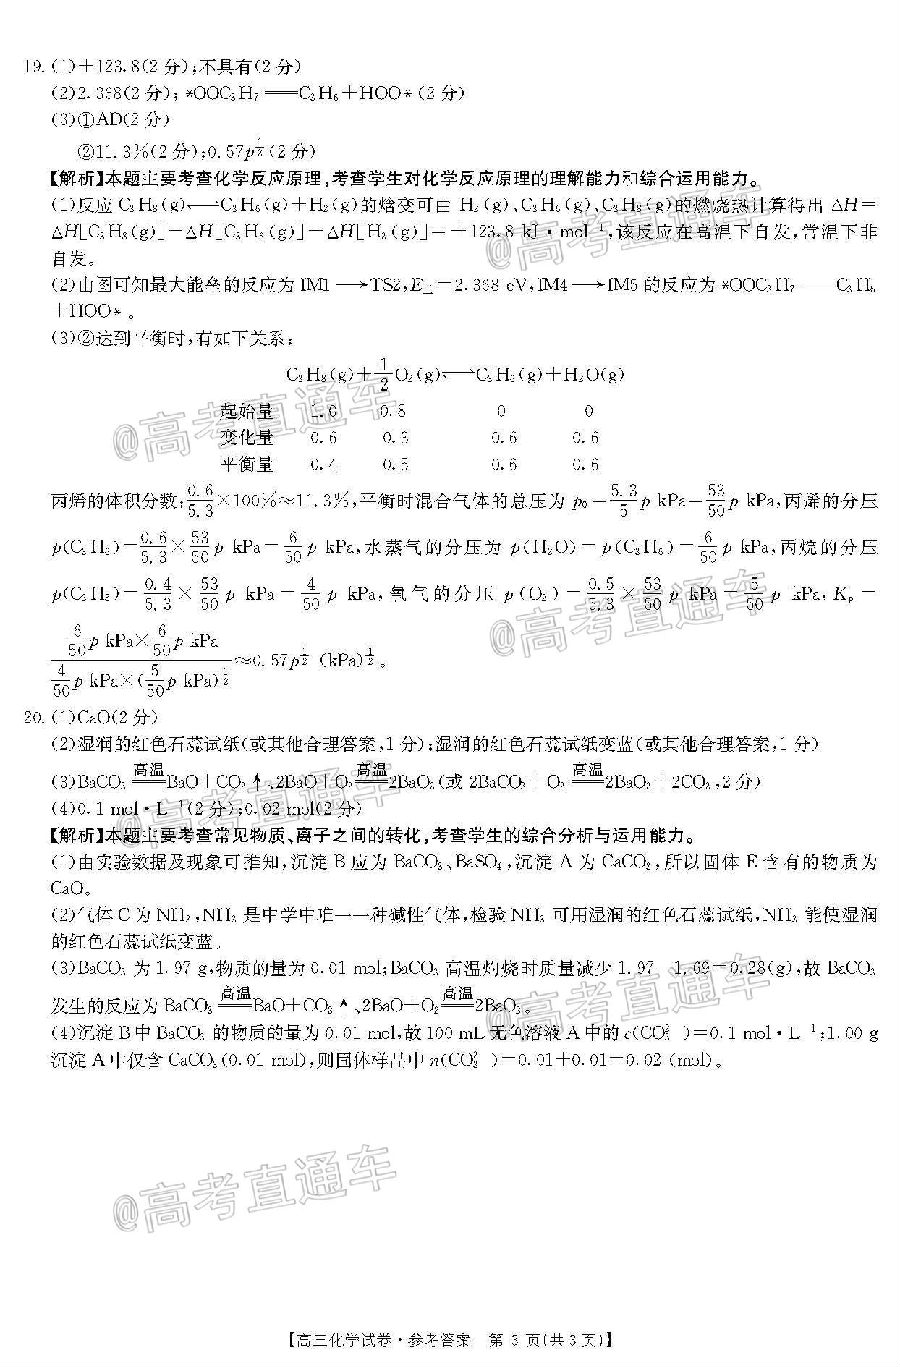 19. (1)+123.8(2 分);不具有(2 分)
(2)2.398(2 分); *OOC₃H₇══C₃H₆+HOO*(2 分)
(3)①AD(2 分)
②11.3%(2 分);0.57p^½(2 分)
【解析】本题主要考查化学反应原理,考查学生对化学反应原理的理解能力和综合运用能力。
(1)反应 C₃H₈(g)⇌C₃H₆(g)+H₂(g)的焓变可由 H₂(g)、C₃H₆(g)、C₃H₈(g)的燃烧热计算得出 ΔH=
ΔH[C₃H₈(g)]-ΔH[C₃H₆(g)]-ΔH[H₂(g)]=+123.8 kJ·mol⁻¹,该反应在高温下自发,常温下非
自发。
(2)由图可知最大能垒的反应为 IM1→TS2,E正=2.398 eV,IM4→IM5 的反应为 *OOC₃H₇══C₃H₆
+HOO*。
(3)②达到平衡时,有如下关系:
C₃H₈(g)+½O₂(g)⇌C₃H₆(g)+H₂O(g)
起始量 1.0 0.8 0 0
变化量 0.6 0.3 0.6 0.6
平衡量 0.4 0.5 0.6 0.6
丙烯的体积分数:0.6/5.3×100%≈11.3%,平衡时混合气体的总压为 p₀=5.3/5 p kPa=53/50 p kPa,丙烯的分压
p(C₃H₆)=0.6/5.3×53/50 p kPa=6/50 p kPa,水蒸气的分压为 p(H₂O)=p(C₃H₆)=6/50 p kPa,丙烷的分压
p(C₃H₈)=0.4/5.3×53/50 p kPa=4/50 p kPa,氧气的分压 p(O₂)=0.5/5.3×53/50 p kPa=5/50 p kPa,Kₚ=
(6/50 p kPa×6/50 p kPa)/(4/50 p kPa×(5/50 p kPa)^½)≈0.57p^½ (kPa)^½。
20. (1)CaO(2 分)
(2)湿润的红色石蕊试纸(或其他合理答案,1 分);湿润的红色石蕊试纸变蓝(或其他合理答案,1 分)
(3)BaCO₃ ══高温══ BaO+CO₂↑、2BaO+O₂ ══高温══ 2BaO₂(或 2BaCO₃+O₂ ══高温══ 2BaO₂+2CO₂,2 分)
(4)0.1 mol·L⁻¹(2 分);0.02 mol(2 分)
【解析】本题主要考查常见物质、离子之间的转化,考查学生的综合分析与运用能力。
(1)由实验数据及现象可推知,沉淀 B 应为 BaCO₃、BaSO₄,沉淀 A 为 CaCO₃,所以固体 E 含有的物质为
CaO。
(2)气体 C 为 NH₃,NH₃ 是中学中唯一一种碱性气体,检验 NH₃ 可用湿润的红色石蕊试纸,NH₃ 能使湿润
的红色石蕊试纸变蓝。
(3)BaCO₃ 为 1.97 g,物质的量为 0.01 mol;BaCO₃ 高温灼烧时质量减少 1.97-1.69=0.28(g),故 BaCO₃
发生的反应为 BaCO₃ ══高温══ BaO+CO₂↑、2BaO+O₂ ══高温══ 2BaO₂。
(4)沉淀 B 中 BaCO₃ 的物质的量为 0.01 mol,故 100 mL 无色溶液 A 中的 c(CO₃²⁻)=0.1 mol·L⁻¹;1.00 g
沉淀 A 中仅含 CaCO₃(0.01 mol),则固体样品中 n(CO₃²⁻)=0.01+0.01=0.02 (mol)。
@高考直通车
@高考直通车
@高考直通车
@高考直通车
@高考直通车
@高考直通车
@高考直通车
【高三化学试卷·参考答案 第 3 页(共 3 页)】